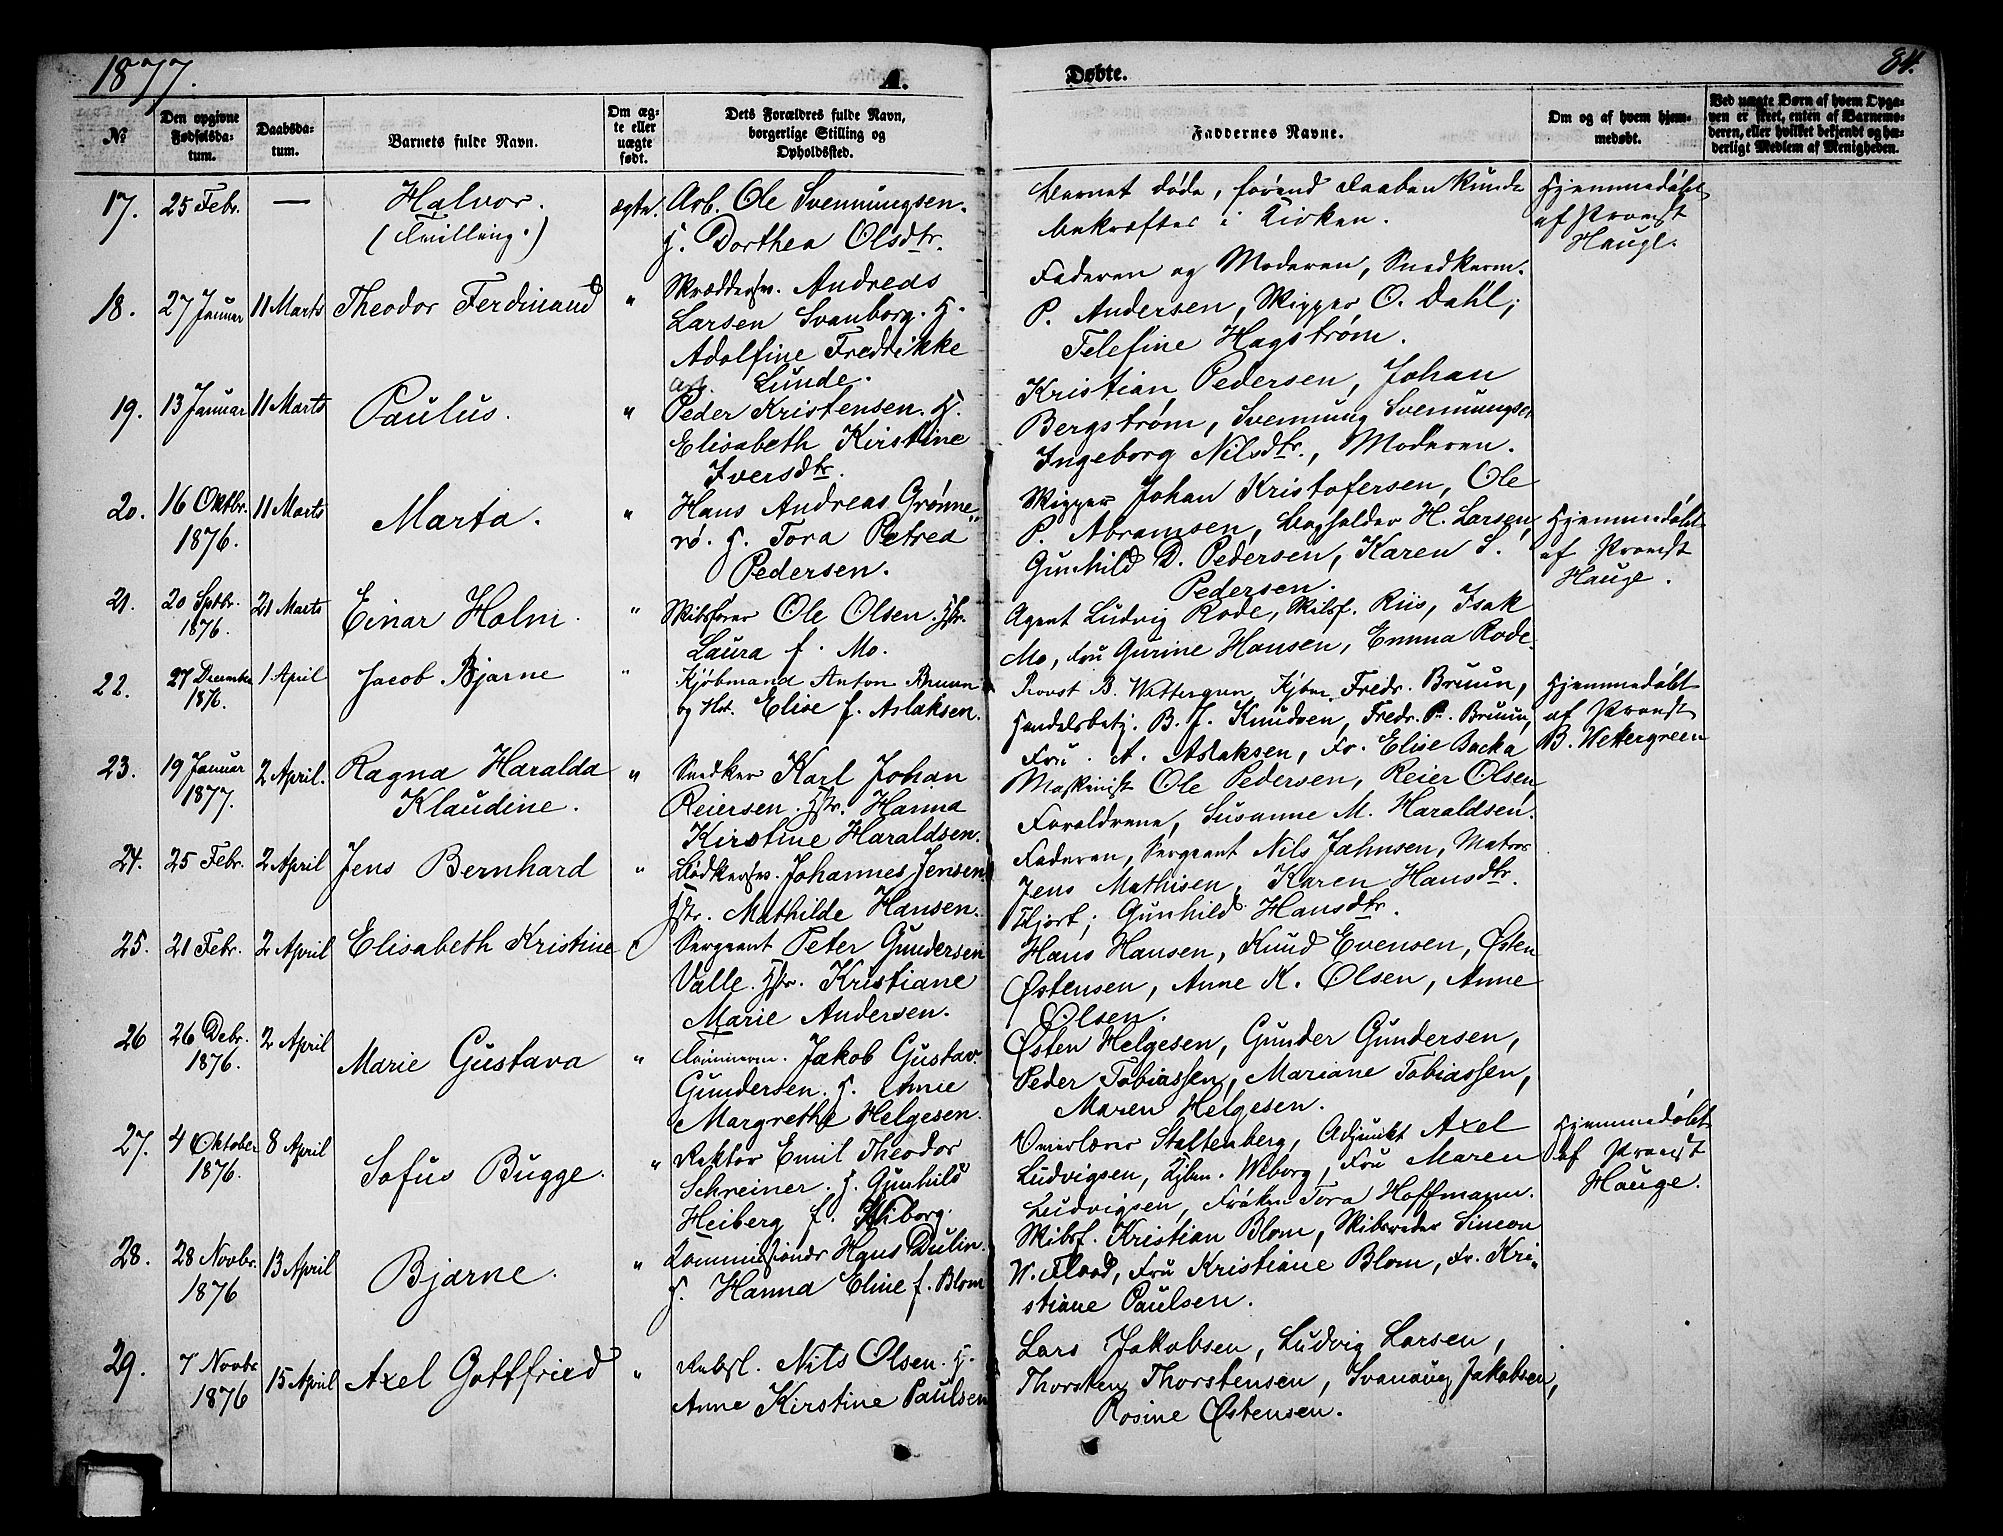 1877.
A.
Døbte.
84.
№
Den opgivne Fødselsda-
tum.
Daabsda-
tum.
Barnets fulde Navn.
Om æg-
te eller
uægte
født.
Dets Forældres fulde Navn,
borgerlige Stilling og
Opholdssted.
Faddernes Navne.
Om og af hvem hjem-
medøbt.
Ved uægte Børn af hvem Opga-
ven er skeet, enten af Barnemo-
deren, eller hvilket bekjendt og hæ-
derligt Medlem af Menigheden.
17. 25 Febr. — Halvor.
(Tvilling.)
ægte.
Arb. Ole Svennungsen.
H. Dorthea Olsdtr.
Barnet døde, førend Daaben kunde
bekræftes i Kirken.
Hjemmedøbt
af Provst
Hauge.
18. 27 Januar 11 Marts Theodor Ferdinand "
Skræddersv. Andreas
Larsen Svanborg. H.
Adolfine Fredrikke
Lunde.
Faderen og Moderen, Snedkerm.
P. Andersen, Skipper O. Dahl;
Telefine Hagstrøm.
19. 13 Januar 11 Marts Paulus. "
Arb.
Peder Kristensen. H.
Elisabeth Kirstine
Iversdtr.
Kristian Pedersen, Johan
Bergstrøm, Svennung Svennungsen
Ingeborg Nilsdtr., Moderen.
20. 16 Oktbr.
1876.
11 Marts Marta. "
Hans Andreas Grønne-
rø. H. Tora Petrea
Pedersen.
Skipper Johan Kristofersen, Ole
P. Abramsen, Bogholder H. Larsen,
Gunhild D. Pedersen, Karen S.
Pedersen.
Hjemmedøbt
af Provst
Hauge.
21. 20 Sptbr.
1876.
21 Marts Einar Holm. "
Skibsfører Ole Olsen. Hstr.
Laura f. Mo.
Agent Ludvig Rode, Skibsf. Riis, Isak
Mo, Fru Gurine Hansen, Emma Rode.
22. 27 December
1876.
1 April Jacob Bjarne "
Kjøbmand Anton Bruun
og Hst. Elise f. Aslaksen.
Provst B. Wettergreen, Kjbm. Fredr. Bruun,
Handelsbetj. B. J. Knudsen, Fredr. P. Bruun,
Fru A. Aslaksen, Fr. Elise Backa
Hjemmedøbt
af Provst
B. Wettergreen
23. 19 Januar
1877.
2 April. Ragna Haralda
Klaudine. "
Snedker Karl Johan
Reiersen. Hstr. Hanna
Kirstine Haraldsen.
Maskinist Ole Pedersen, Reier Olsen,
Forældrene, Susanne M. Haraldsen.
24. 25 Febr. 2 April Jens Bernhard "
Bødkersv. Johannes Jensen.
Hstr. Mathilde Hansen.
Faderen, Sergeant Nils Jahnsen, Matros
Jens Mathisen, Karen Hansdtr.
Hjort; Gunhild Hansdtr.
25. 21 Febr. 2 April Elisabeth Kristine
Sergeant Peter Gundersen
Valle. Hstr. Kristiane
Marie Andersen.
Hans Hansen, Knud Evensen, Østen
Østensen, Anne K. Olsen, Anne
Olsen.
26 26 Debr.
1876.
2 April Marie Gustava "
Tømmerm. Jakob Gustav
Gundersen. H. Anne
Margrethe Helgesen.
Østen Helgesen, Gunder Gundersen,
Peder Tobiassen, Mariane Tobiassen,
Maren Helgesen.
27. 4 Oktober
1876.
8 April Sofus Bugge. "
Rektor Emil Theodor
Schreiner. H. Gunhild
Heiberg f. Wiborg.
Overlærer Stoltenberg, Adjunkt Axel
Ludvigsen, Kjbm. Weborg, Fru Maren
Ludvigsen, Frøken Tora Hoffmann.
Hjemmedøbt
af Provst
Hauge.
28. 28 Novbr.
1876
13 April Bjarne. "
Kommissionær Hans Dulin.
H. Hanna Eline f. Blom
Skibsf. Kristian Blom, Skibsreder Simon
W. Flood, Fru Kristiane Blom, Fr. Kri-
stiane Paulsen.
29. 7 Novbr.
1876
15 April Axel Gottfried "
Rebsl. Nils Olsen. H.
Anne Kirstine Paulsen
Lars Jakobsen, Ludvig Larsen,
Thorsten Thorstensen, Svanaug Jakobsen,
Rosine Østensen.